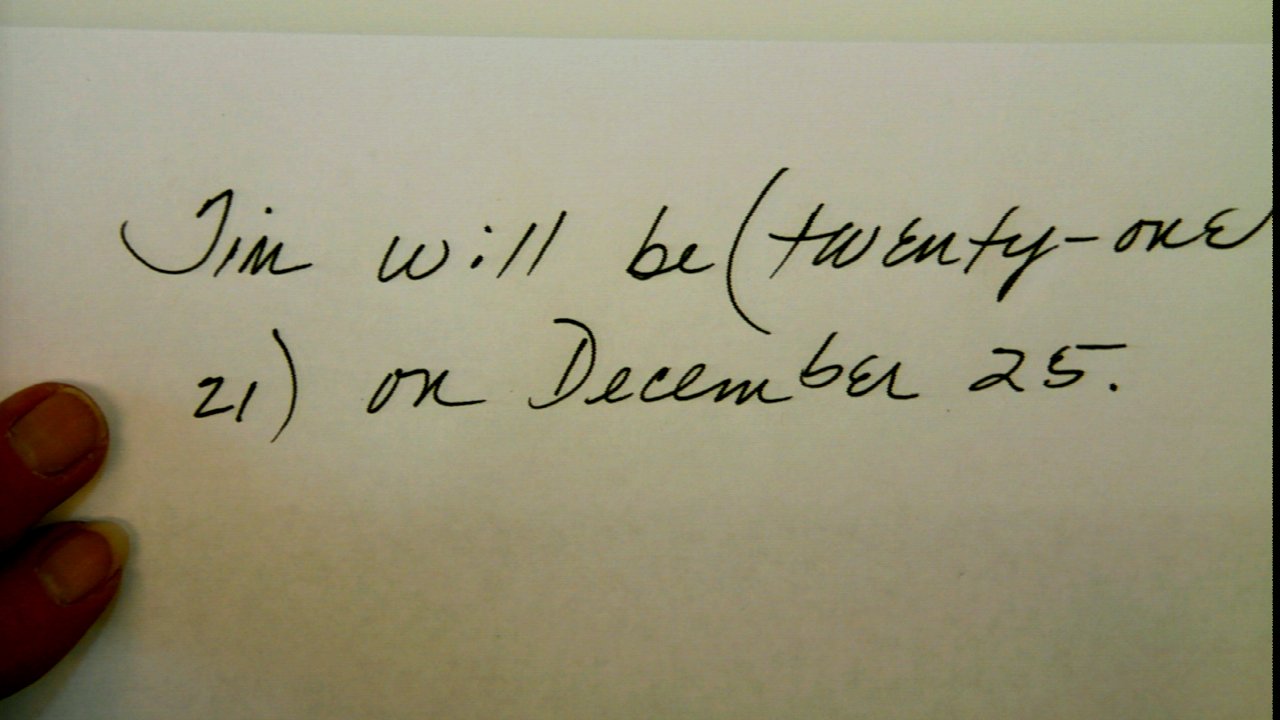 Tim will be (twenty-one
21) on December 25.